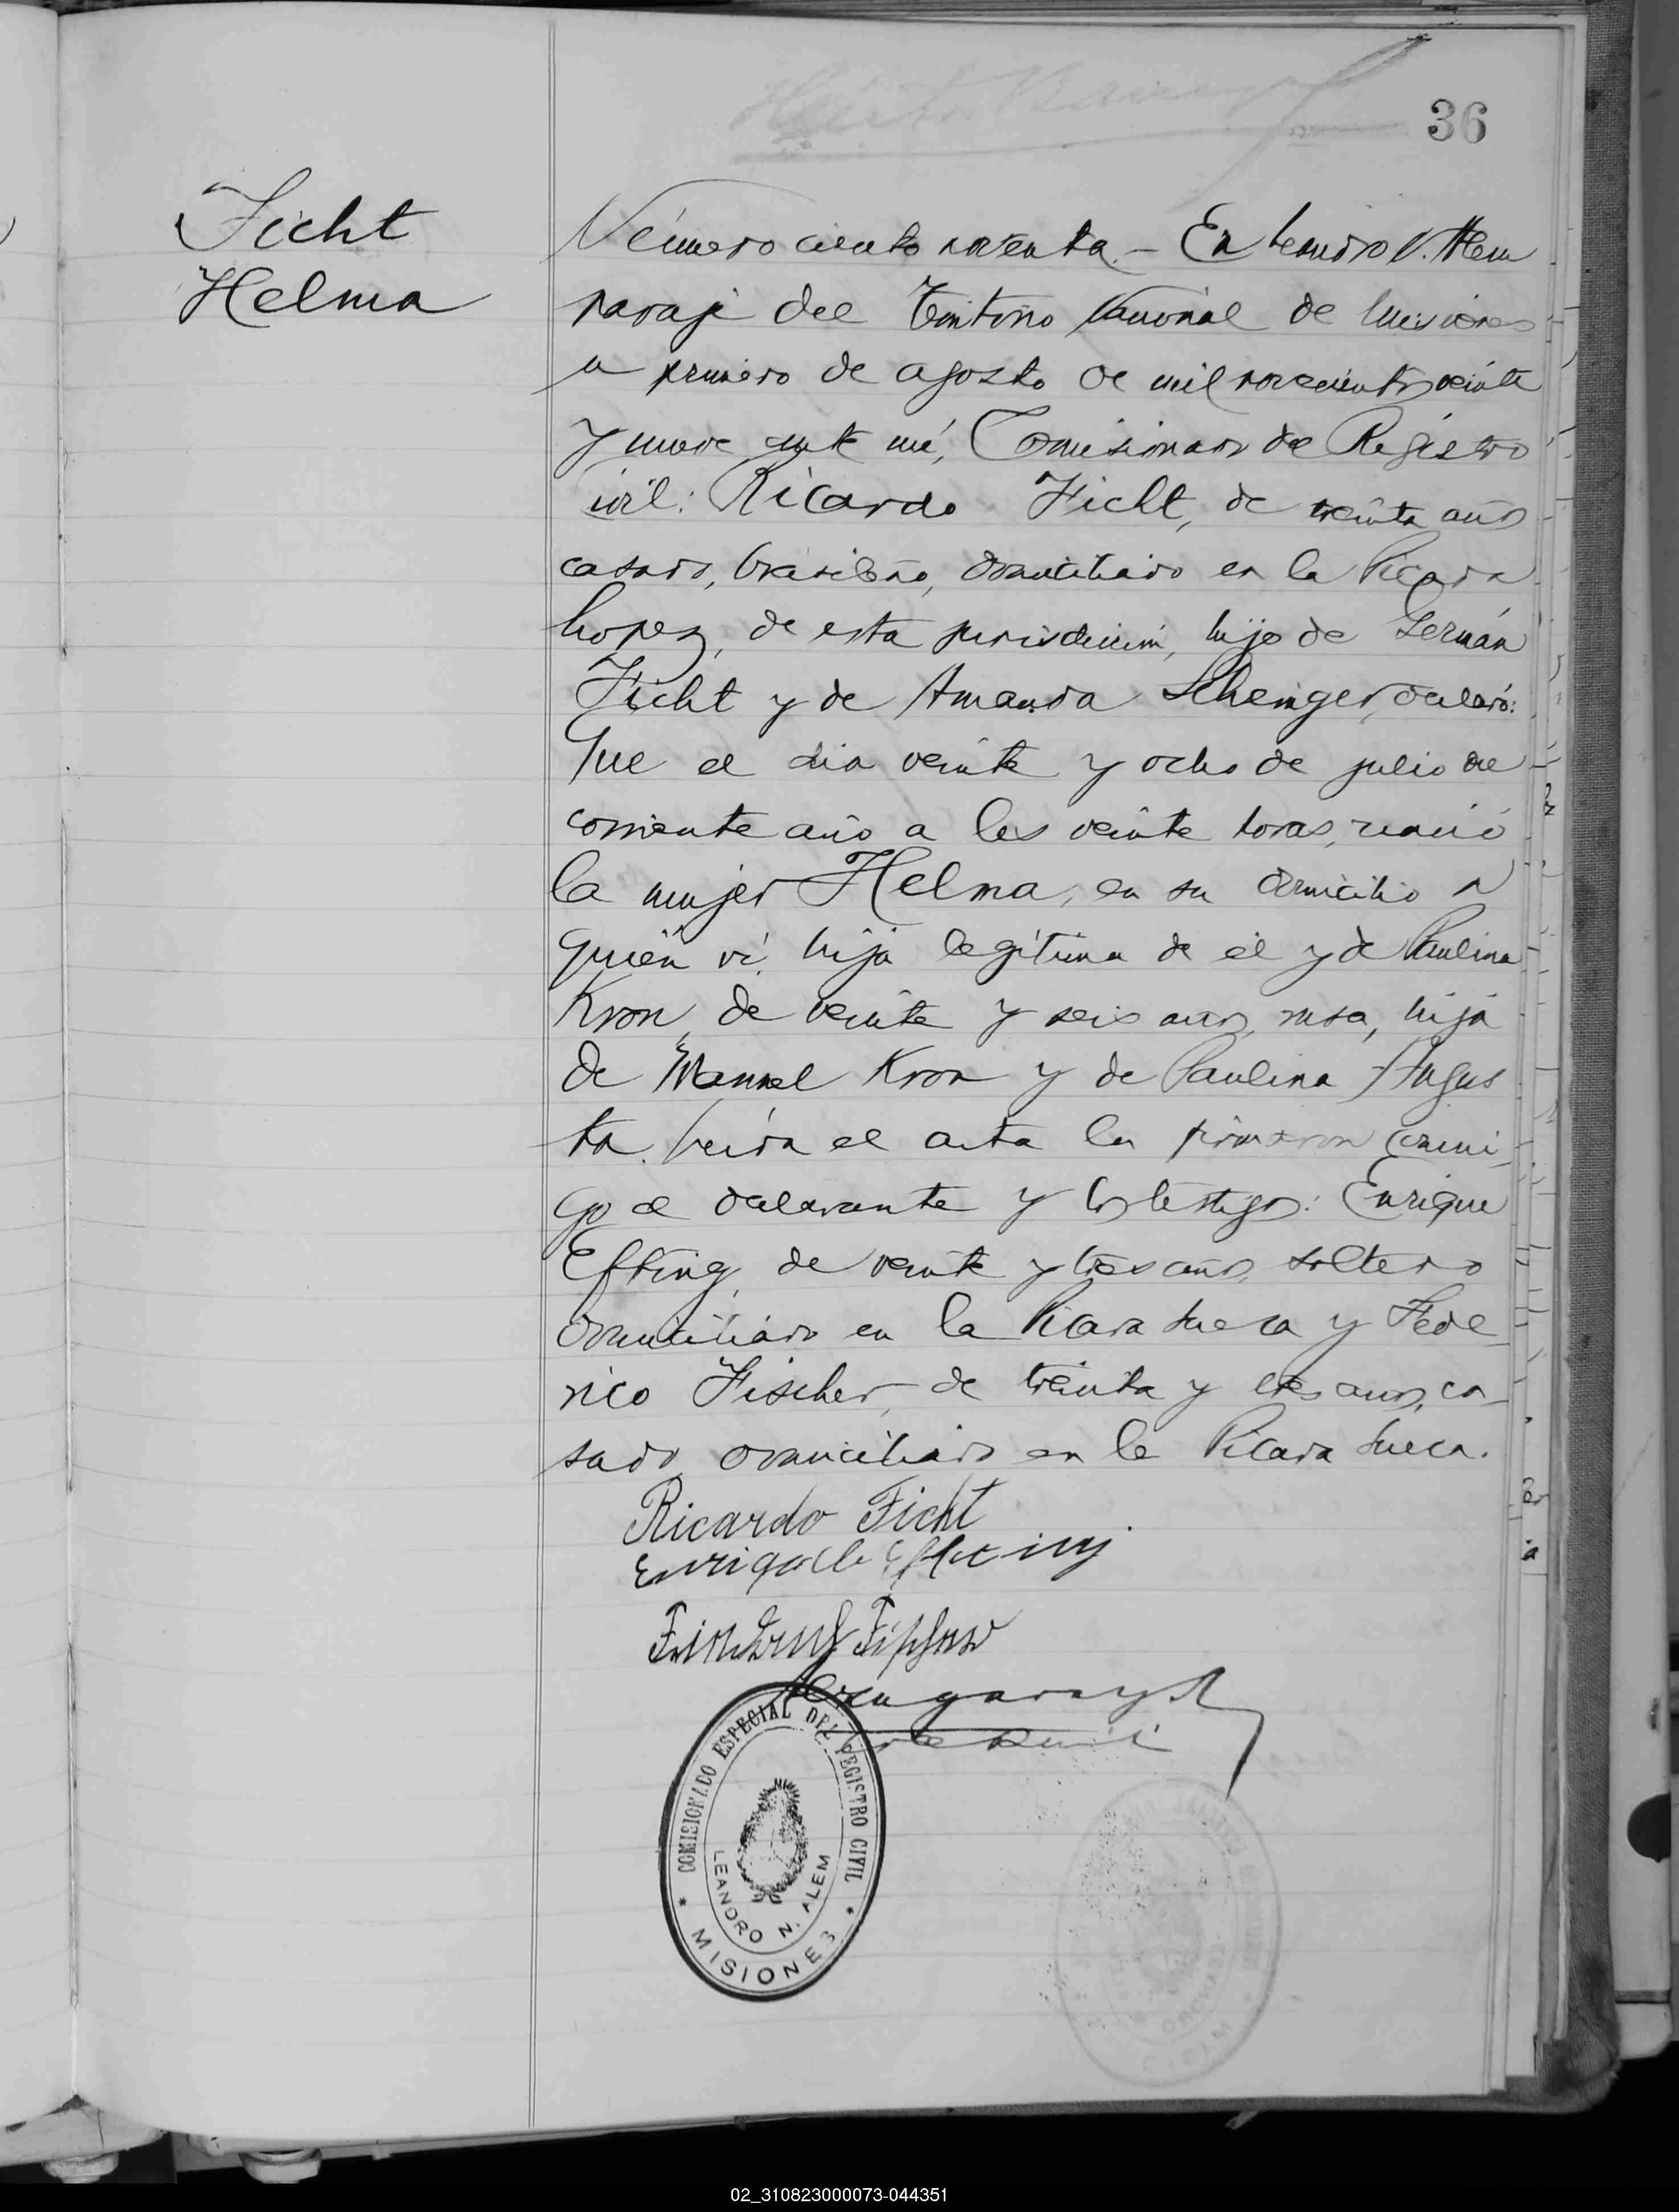 36
Ficht
Helma
Número ciento noventa.- En Leandro N. Alem
paraje del Territorio Nacional de Misiones
a primero de agosto de mil novecientos veinte
y nueve ante mí, Comisionado de Registro
Civil: Ricardo Ficht, de treinta años
casado, brasileño, domiciliado en la Picada
Lopez, de esta jurisdicción, hijo de Germán
Ficht y de Amanda Scheinger, declaró:
Que el dia veinte y ocho de julio del
corriente año a las veinte horas, nació
la mujer Helma, en su domicilio a
quién ví, hija legítima de él y de Paulina
Kron, de veinte y seis años, rusa, hija
de Manuel Kron y de Paulina Augus
ta. Leida el acta la firmaron conmi
go el declarante y los testigos: Enrique
Efting, de veinte y tres años, soltero
domiciliado en la Picada Sueca y Fede
rico Fischer, de treinta y tres años, ca-
sado, domiciliado en la Picada Sueca.
Ricardo Ficht
Enrique Efting
COMISIONADO ESPECIAL DEL REGISTRO CIVIL
LEANDRO N. ALEM
* MISIONES *
02_310823000073-044351